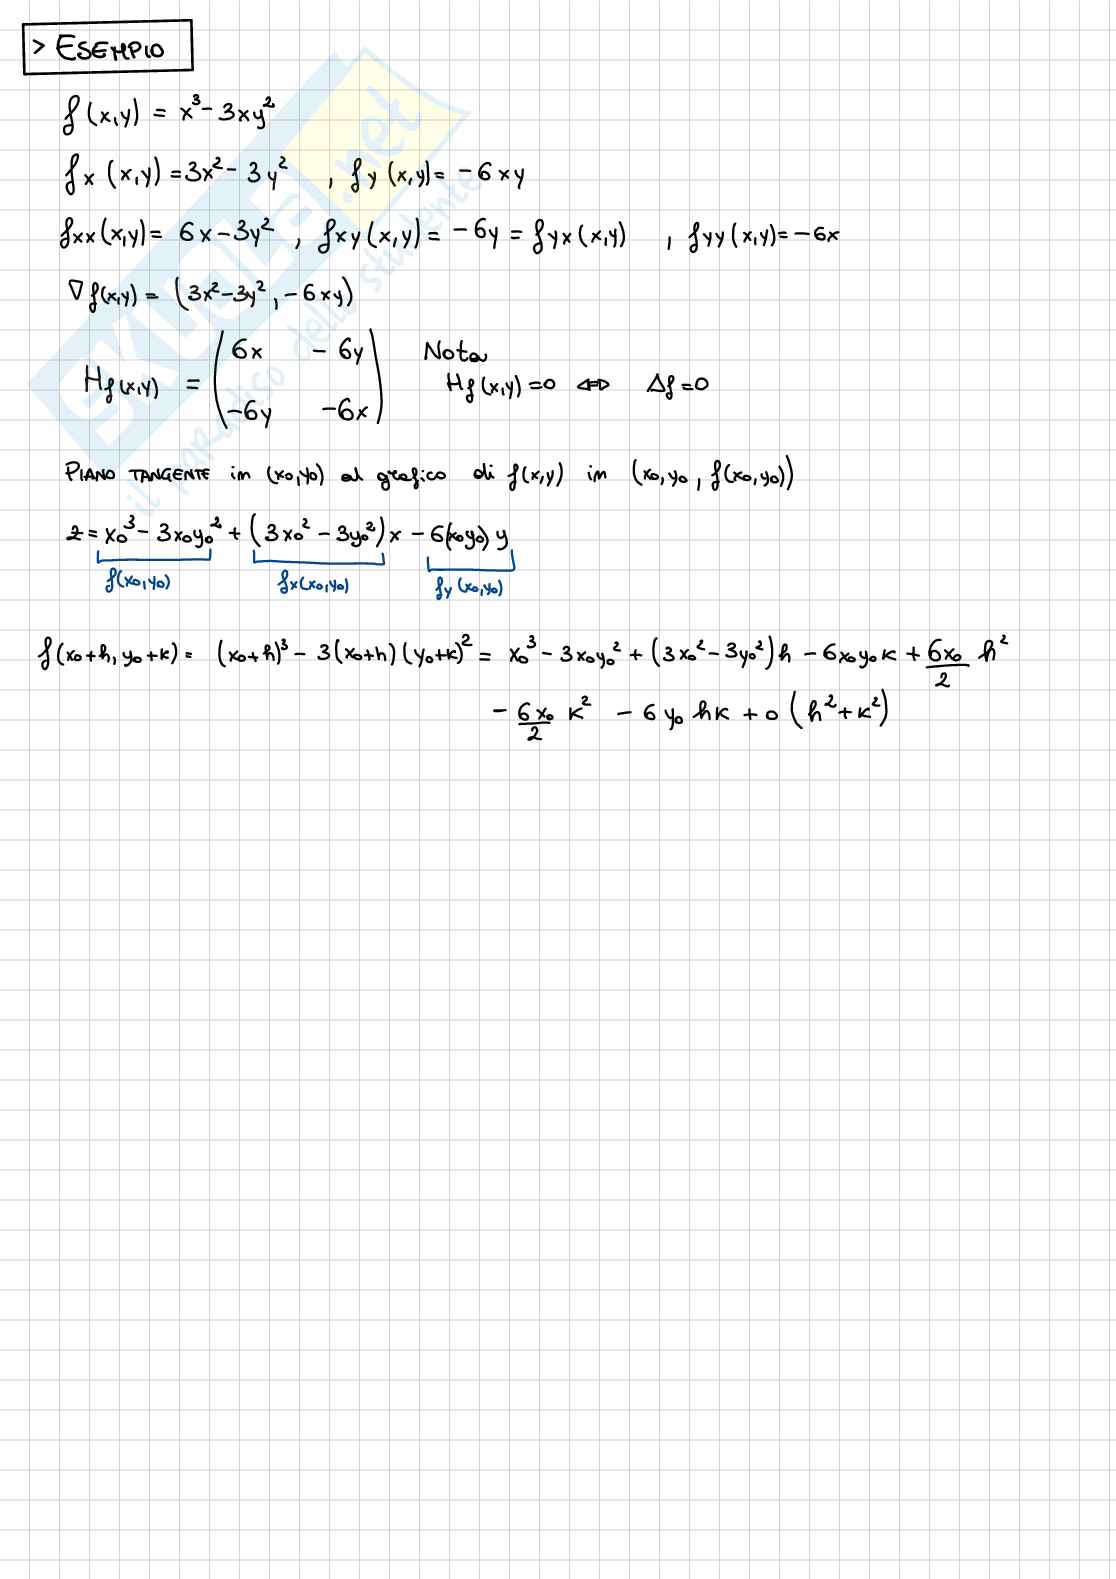 > ESEMPIO
f(x,y) = x³ - 3xy²
fx (x,y) = 3x² - 3y² , fy (x,y) = -6xy
fxx (x,y) = 6x - 3y² , fxy (x,y) = -6y = fyx (x,y) , fyy (x,y) = -6x
∇f(x,y) = (3x² - 3y² , -6xy)
Hf(x,y) = (6x -6y
-6y -6x)
Nota
Hf(x,y) = 0 ⇔ Δf = 0
PIANO TANGENTE in (x₀,y₀) al grafico di f(x,y) in (x₀,y₀, f(x₀,y₀))
z = x₀³ - 3x₀y₀² + (3x₀² - 3y₀²)x - 6(x₀y₀)y
f(x₀,y₀) fx(x₀,y₀) fy(x₀,y₀)
f(x₀+h, y₀+k) = (x₀+h)³ - 3(x₀+h)(y₀+k)² = x₀³ - 3x₀y₀² + (3x₀² - 3y₀²)h - 6x₀y₀k + 6x₀/2 h²
- 6x₀/2 k² - 6y₀hk + o(h² + k²)
SKUOLA.net
il paradiso dello studente